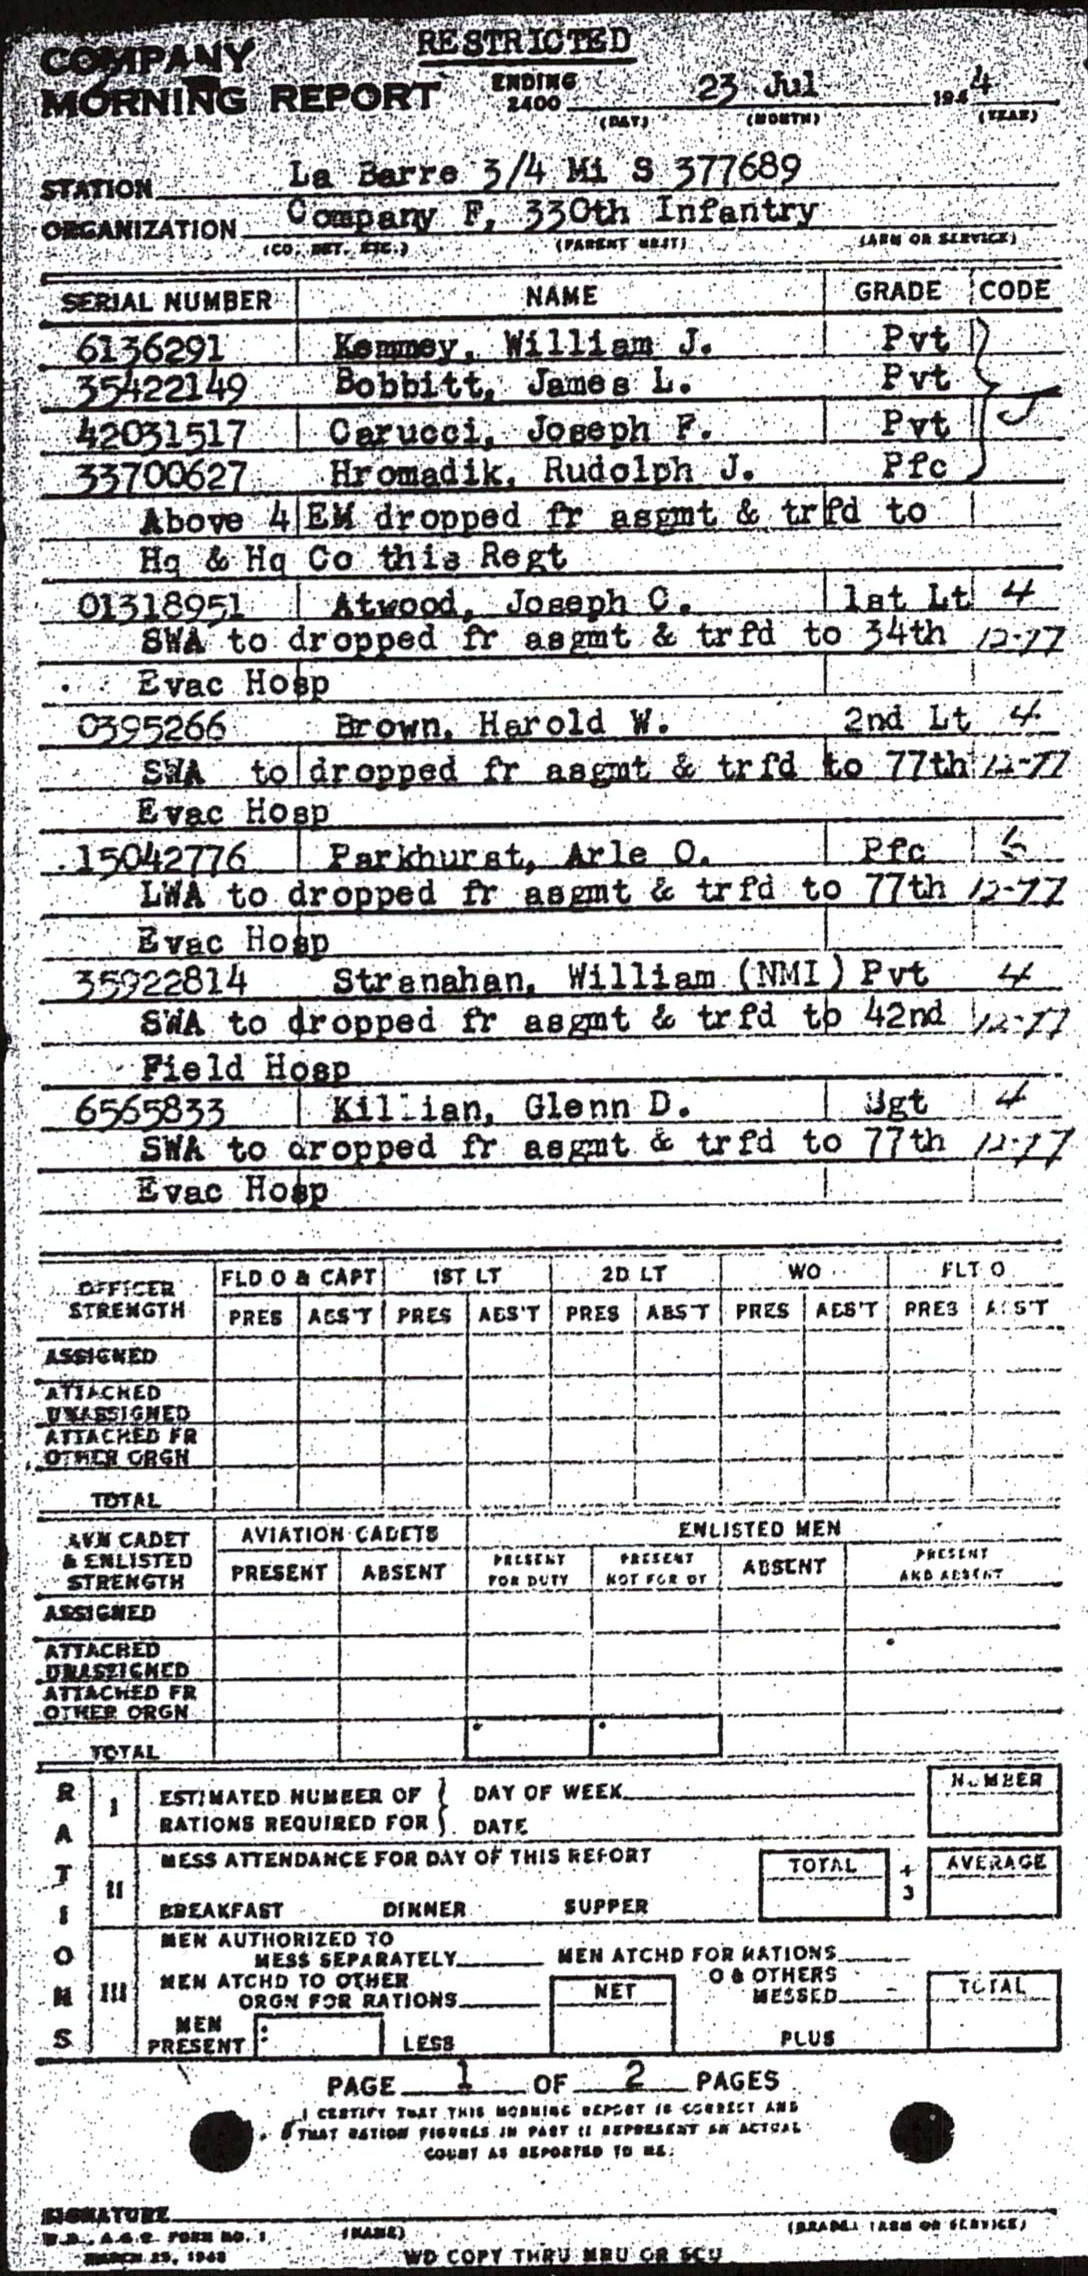 RESTRICTED
COMPANY
MORNING REPORT
ENDING
2400
23 Jul 1944
(DAY) (MONTH) (YEAR)
STATION La Barre 3/4 Mi S 377689
ORGANIZATION Company F, 330th Infantry
(CO., DET., ETC.) (PARENT UNIT) (ARM OR SERVICE)
SERIAL NUMBER NAME GRADE CODE
6136291 Kemmey, William J. Pvt
35422149 Bobbitt, James L. Pvt
42031517 Carucci, Joseph F. Pvt J
33700627 Hromadik, Rudolph J. Pfc
Above 4 EM dropped fr asgmt & trfd to
Hq & Hq Co this Regt
01318951 Atwood, Joseph C. 1st Lt 4
SWA to dropped fr asgmt & trfd to 34th 12-77
Evac Hosp
0395266 Brown, Harold W. 2nd Lt 4
SWA to dropped fr asgmt & trfd to 77th 12-77
Evac Hosp
15042776 Parkhurst, Arle O. Pfc
LWA to dropped fr asgmt & trfd to 77th 12-77
Evac Hosp
35922814 Stranahan, William (NMI) Pvt 4
SWA to dropped fr asgmt & trfd to 42nd 12-77
Field Hosp
6565833 Killian, Glenn D. Sgt 4
SWA to dropped fr asgmt & trfd to 77th 12-77
Evac Hosp
OFFICER
STRENGTH
FLD O & CAPT 1ST LT 2D LT WO FLT O
PRES ABS'T PRES ABS'T PRES ABS'T PRES ABS'T PRES ABS'T
ASSIGNED
ATTACHED
UNASSIGNED
ATTACHED FR
OTHER ORGN
TOTAL
AVN CADET
& ENLISTED
STRENGTH
AVIATION CADETS ENLISTED MEN
PRESENT ABSENT PRESENT
FOR DUTY PRESENT
NOT FOR DY ABSENT PRESENT
AND ABSENT
ASSIGNED
ATTACHED
UNASSIGNED
ATTACHED FR
OTHER ORGN
TOTAL
RATIONS
I ESTIMATED NUMBER OF } DAY OF WEEK
RATIONS REQUIRED FOR } DATE
NUMBER
II MESS ATTENDANCE FOR DAY OF THIS REPORT
BREAKFAST DINNER SUPPER
TOTAL ÷ 3 AVERAGE
III MEN AUTHORIZED TO
MESS SEPARATELY MEN ATCHD FOR RATIONS
MEN ATCHD TO OTHER
ORGN FOR RATIONS NET O & OTHERS
MESSED TOTAL
MEN
PRESENT LESS PLUS
PAGE 1 OF 2 PAGES
I CERTIFY THAT THIS MORNING REPORT IS CORRECT AND
THAT RATION FIGURES IN PART II REPRESENT AN ACTUAL
COUNT AS REPORTED TO ME:
SIGNATURE
(NAME) (GRADE) (ARM OR SERVICE)
W.D., A.G.O. FORM NO. 1
MARCH 25, 1943
WD COPY THRU MRU OR SCU